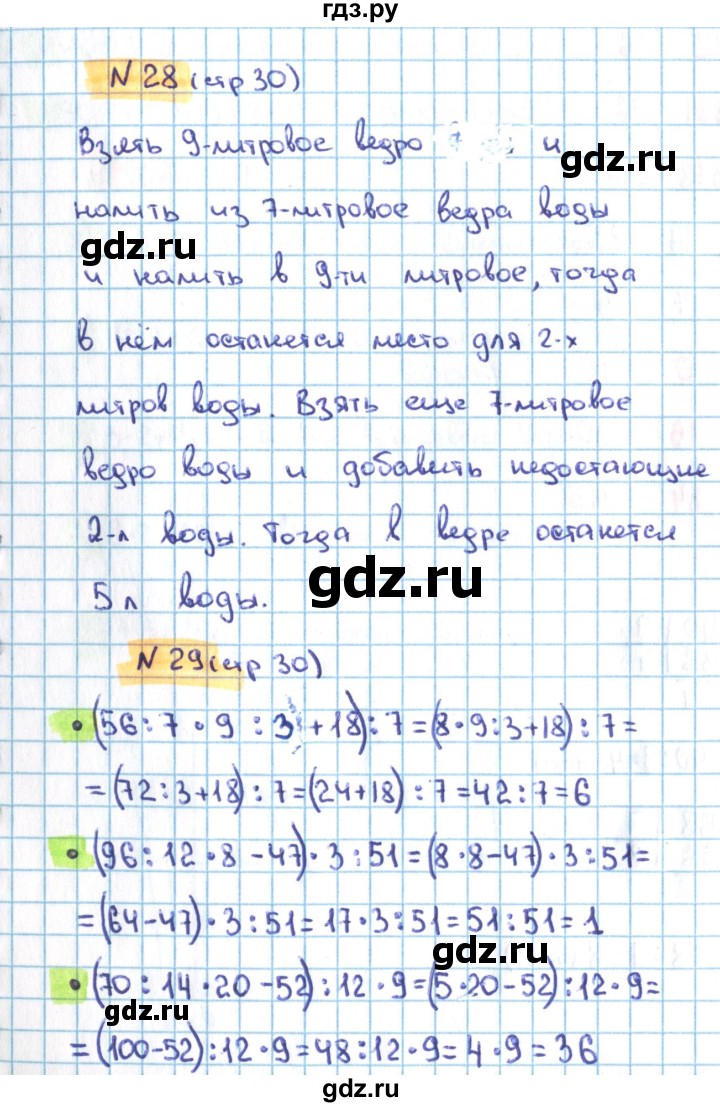 гдз.ру
N 28 (стр 30)
Взять 9-литровое ведро и
gdz.ru
налить из 7-литровое ведра воды
gdz.ru
и налить в 9-ти литровое, тогда
в нём останется место для 2-х
литров воды. Взять еще 7-литровое
ведро воды и добавить недостающие
2-л воды. Тогда в ведре останется
5 л воды.
gdz.ru
N 29 (стр 30)
• (56 : 7 • 9 : 3 + 18) : 7 = (8 • 9 : 3 + 18) : 7 =
= (72 : 3 + 18) : 7 = (24 + 18) : 7 = 42 : 7 = 6
• (96 : 12 • 8 - 47) • 3 : 51 = (8 • 8 - 47) • 3 : 51 =
= (64 - 47) • 3 : 51 = 17 • 3 : 51 = 51 : 51 = 1
gdz.ru
• (70 : 14 • 20 - 52) : 12 • 9 = (5 • 20 - 52) : 12 • 9 =
gdz.ru
= (100 - 52) : 12 • 9 = 48 : 12 • 9 = 4 • 9 = 36
gdz.ru